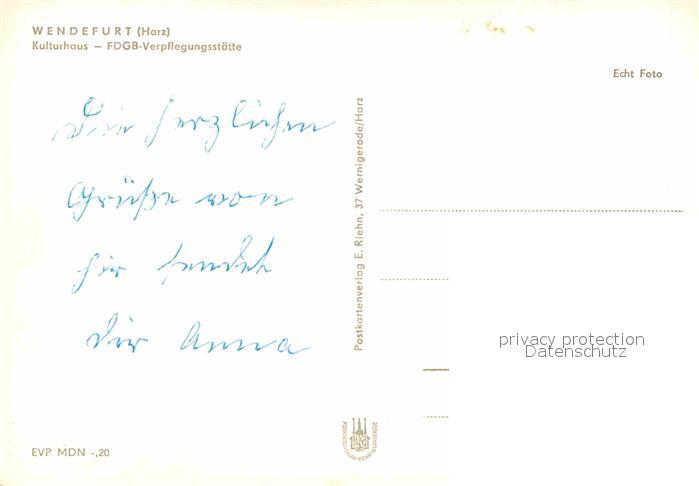 WENDEFURT (Harz)
Kulturhaus – FDGB-Verpflegungsstätte
Echt Foto
Die herzlichen
Grüße von
hir sendet
dir Anna
Postkartenverlag E. Riehn, 37 Wernigerode/Harz
privacy protection
Datenschutz
EVP MDN -,20